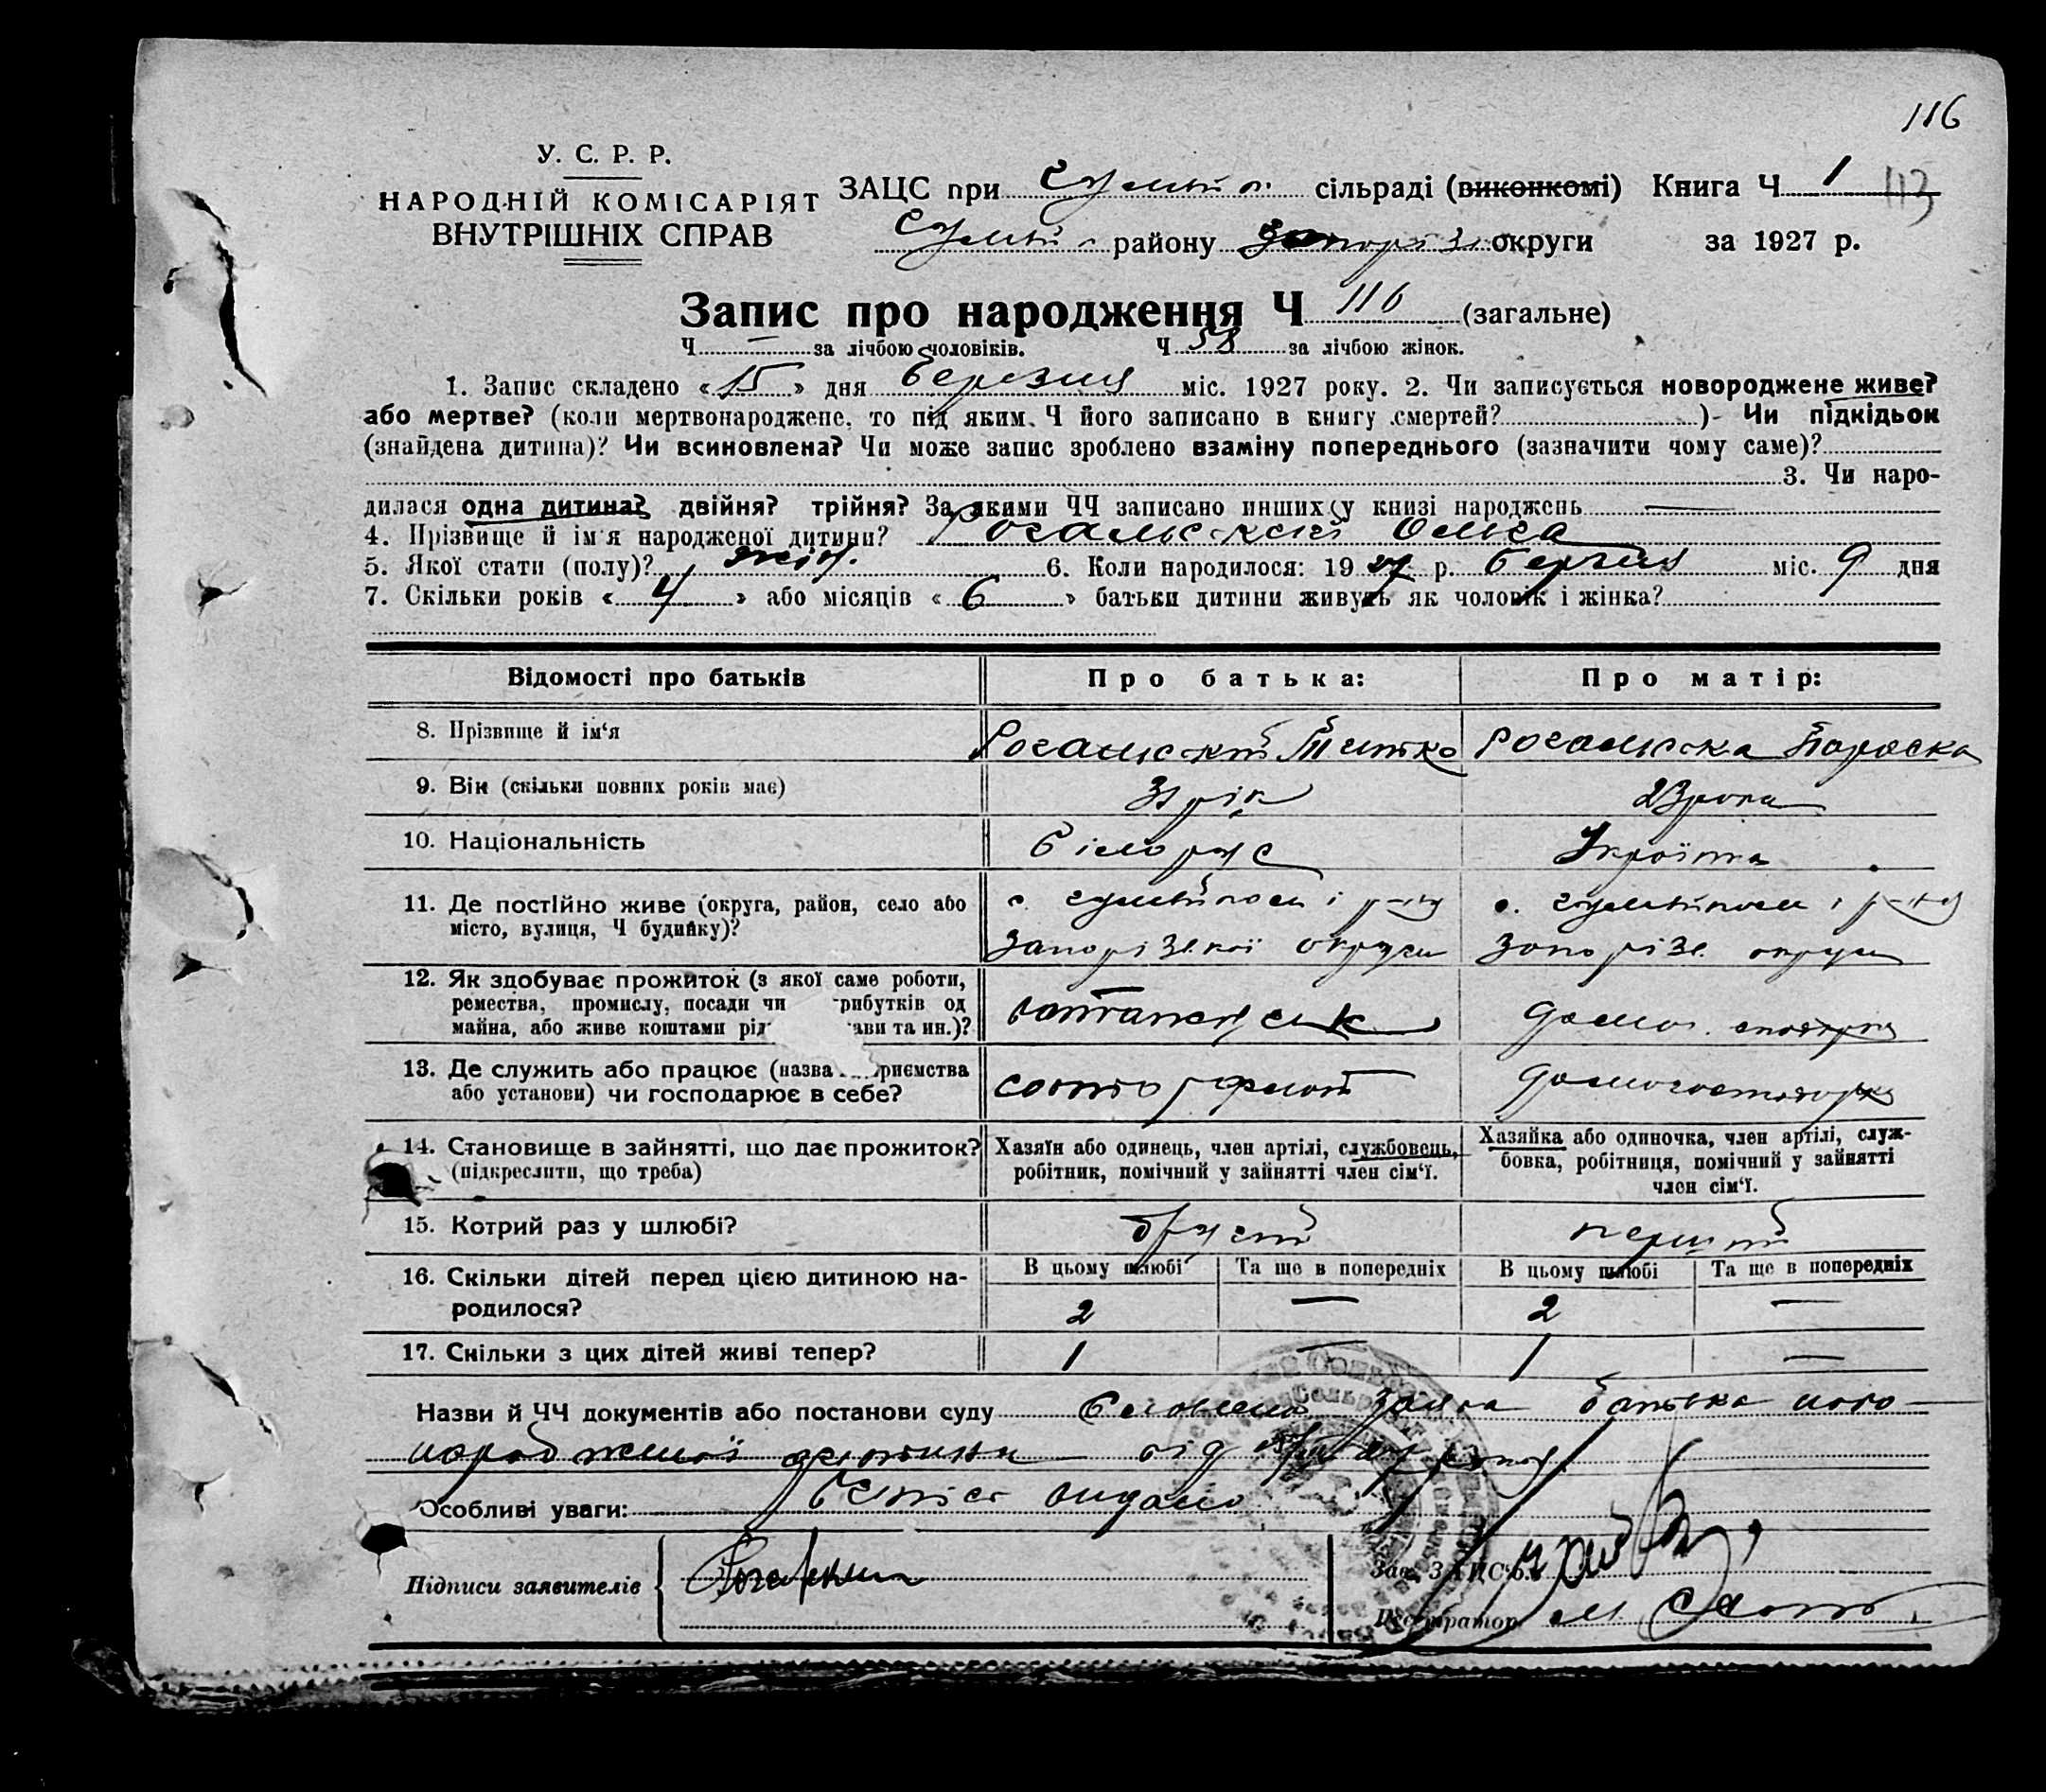 116
У. С. Р. Р.
НАРОДНІЙ КОМІСАРІЯТ
ВНУТРІШНІХ СПРАВ
ЗАЦС при сільраді (виконкомі) Книга Ч 1 113
району округи за 1927 р.
Запис про народження Ч 116 (загальне)
Ч — за лічбою чоловіків. Ч 58 за лічбою жінок.
1. Запис складено «15» дня березня міс. 1927 року. 2. Чи записується новороджене живе?
або мертве? (коли мертвонароджене, то під яким Ч його записано в книгу смертей? ) Чи підкідьок
(знайдена дитина)? Чи всиновлена? Чи може запис зроблено взаміну попереднього (зазначити чому саме)?
3. Чи наро-
дилася одна дитина? двійня? трійня? За якими ЧЧ записано инших у книзі народжень —
4. Прізвище й ім'я народженої дитини? Ольга
5. Якої стати (полу)? жін. 6. Коли народилося: 1927 р. березня міс. 9 дня
7. Скільки років «4» або місяців «6» батьки дитини живуть як чоловік і жінка?
Відомості про батьків Про батька: Про матір:
8. Прізвище й ім'я Рогальскій Титко Рогальска Параска
9. Вік (скільки повних років має) 31 рік 23 роки
10. Національність білорус Українка
11. Де постійно живе (округа, район, село або
місто, вулиця, Ч будинку)?
Запорізької округи Запорізь. округи
12. Як здобуває прожиток (з якої саме роботи,
ремества, промислу, посади чи рибутків од
майна, або живе коштами рід ави та ин.)?
13. Де служить або працює (назва приємства
або установи) чи господарює в себе? домогосподарка
14. Становище в зайнятті, що дає прожиток?
(підкреслити, що треба)
Хазяїн або одинець, член артілі, службовець,
робітник, помічний у зайнятті член сім'ї.
Хазяйка або одиночка, член артілі, служ-
бовка, робітниця, помічний у зайнятті
член сім'ї.
15. Котрий раз у шлюбі? другий перший
16. Скільки дітей перед цією дитиною на-
родилося?
В цьому шлюбі Та ще в попередніх В цьому шлюбі Та ще в попередніх
2 — 2 —
17. Скільки з цих дітей живі тепер? 1 — 1 —
Назви й ЧЧ документів або постанови суду заява батька ново-
народженої дитини від
Особливі уваги: видано
Підписи заявителів
Зав. ЗАЦС'ом
Реєстратор